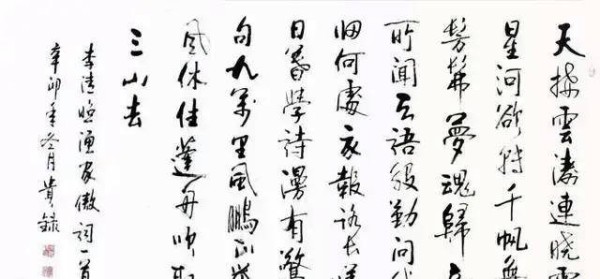 天接雲濤連曉
星河欲轉千帆
髣髴夢魂歸
所聞天語殷勤問
歸何處我報路長
日暮學詩漫有驚
句九萬里風鵬正
風休住蓬舟吹取
三山去
李清照漁家傲詞一首
辛卯年冬月貴錄